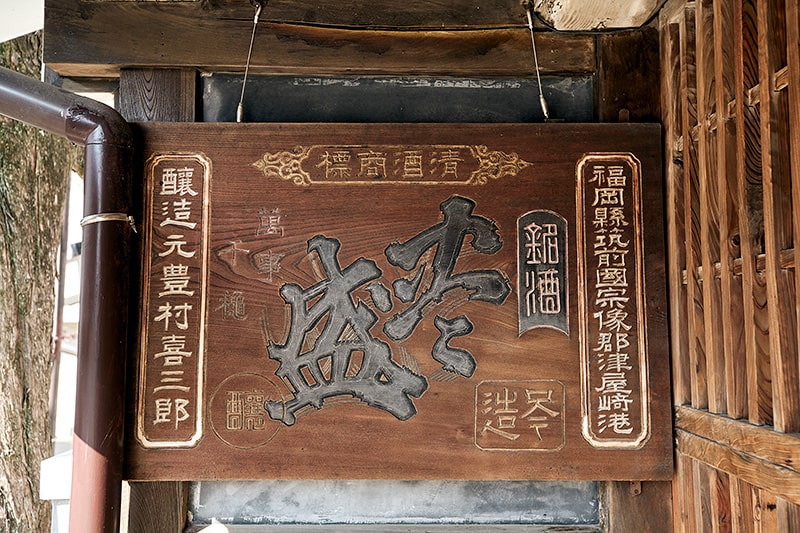 清酒商標
福岡縣筑前國宗像郡津屋崎港
銘酒
冬盛
釀造元豊村喜三郎